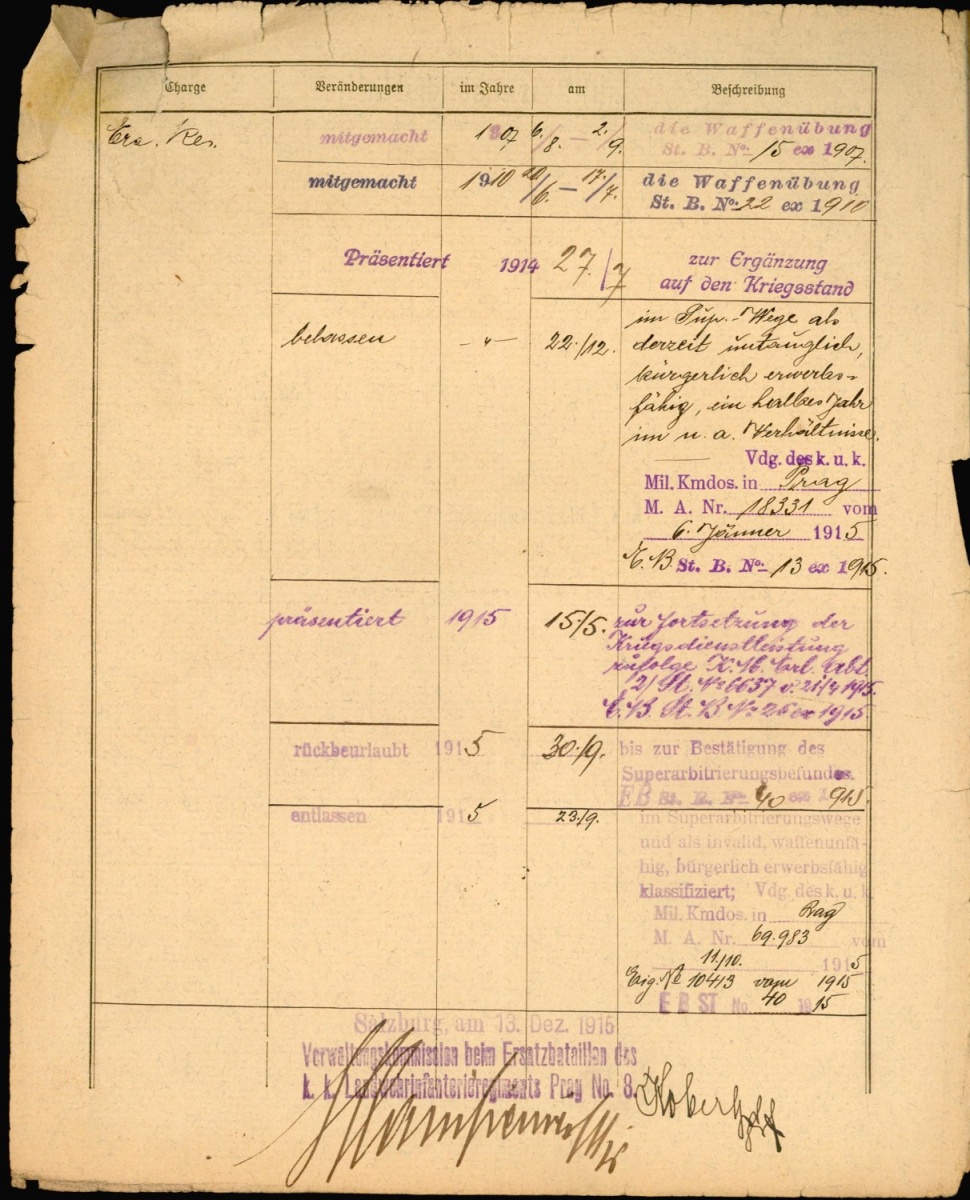 Charge Veränderungen im Jahre am Beschreibung
Ers. Res. mitgemacht 1907 6/8. – 2./9. die Waffenübung
St. B. No. 15 ex 1907.
mitgemacht 1910 20/6. – 17./7. die Waffenübung
St. B. No. 22 ex 1910
Präsentiert 1914 27./7 zur Ergänzung
auf den Kriegsstand
belassen – " – 22./12. im Sup.-Wege als
derzeit untauglich,
bürgerlich erwerbs-
fähig, ein halbes Jahr
im n. a. Verhältnisse.
Vdg. des k. u. k.
Mil. Kmdos. in Prag
M. A. Nr. 18331 vom
6. Jänner 1915
E.B. St. B. No. 13 ex 1915.
präsentiert 1915 15/5. zur Fortsetzung der
Kriegsdienstleistung
zufolge K.M. Erl. Abt.
2/ St. No 6637 v. 21/4 1915.
E.B. St. B No 26 ex 1915
rückbeurlaubt 1915 30./9. bis zur Bestätigung des
Superarbitrierungsbefundes.
EB St. B. No. 40 ex 1915.
entlassen 1915 23./9. im Superarbitrierungswege
und als invalid, waffenunfä-
hig, bürgerlich erwerbsfähig
klassifiziert; Vdg. des k. u. k.
Mil. Kmdos. in Prag
M. A. Nr. 69.983 vom
11/10. 1915
No 10413 vom 1915
E B ST No. 40 1915
Salzburg, am 13. Dez. 1915
Verwaltungskommission beim Ersatzbataillon des
k. k. Landwehrinfanterieregiments Prag No. 8.